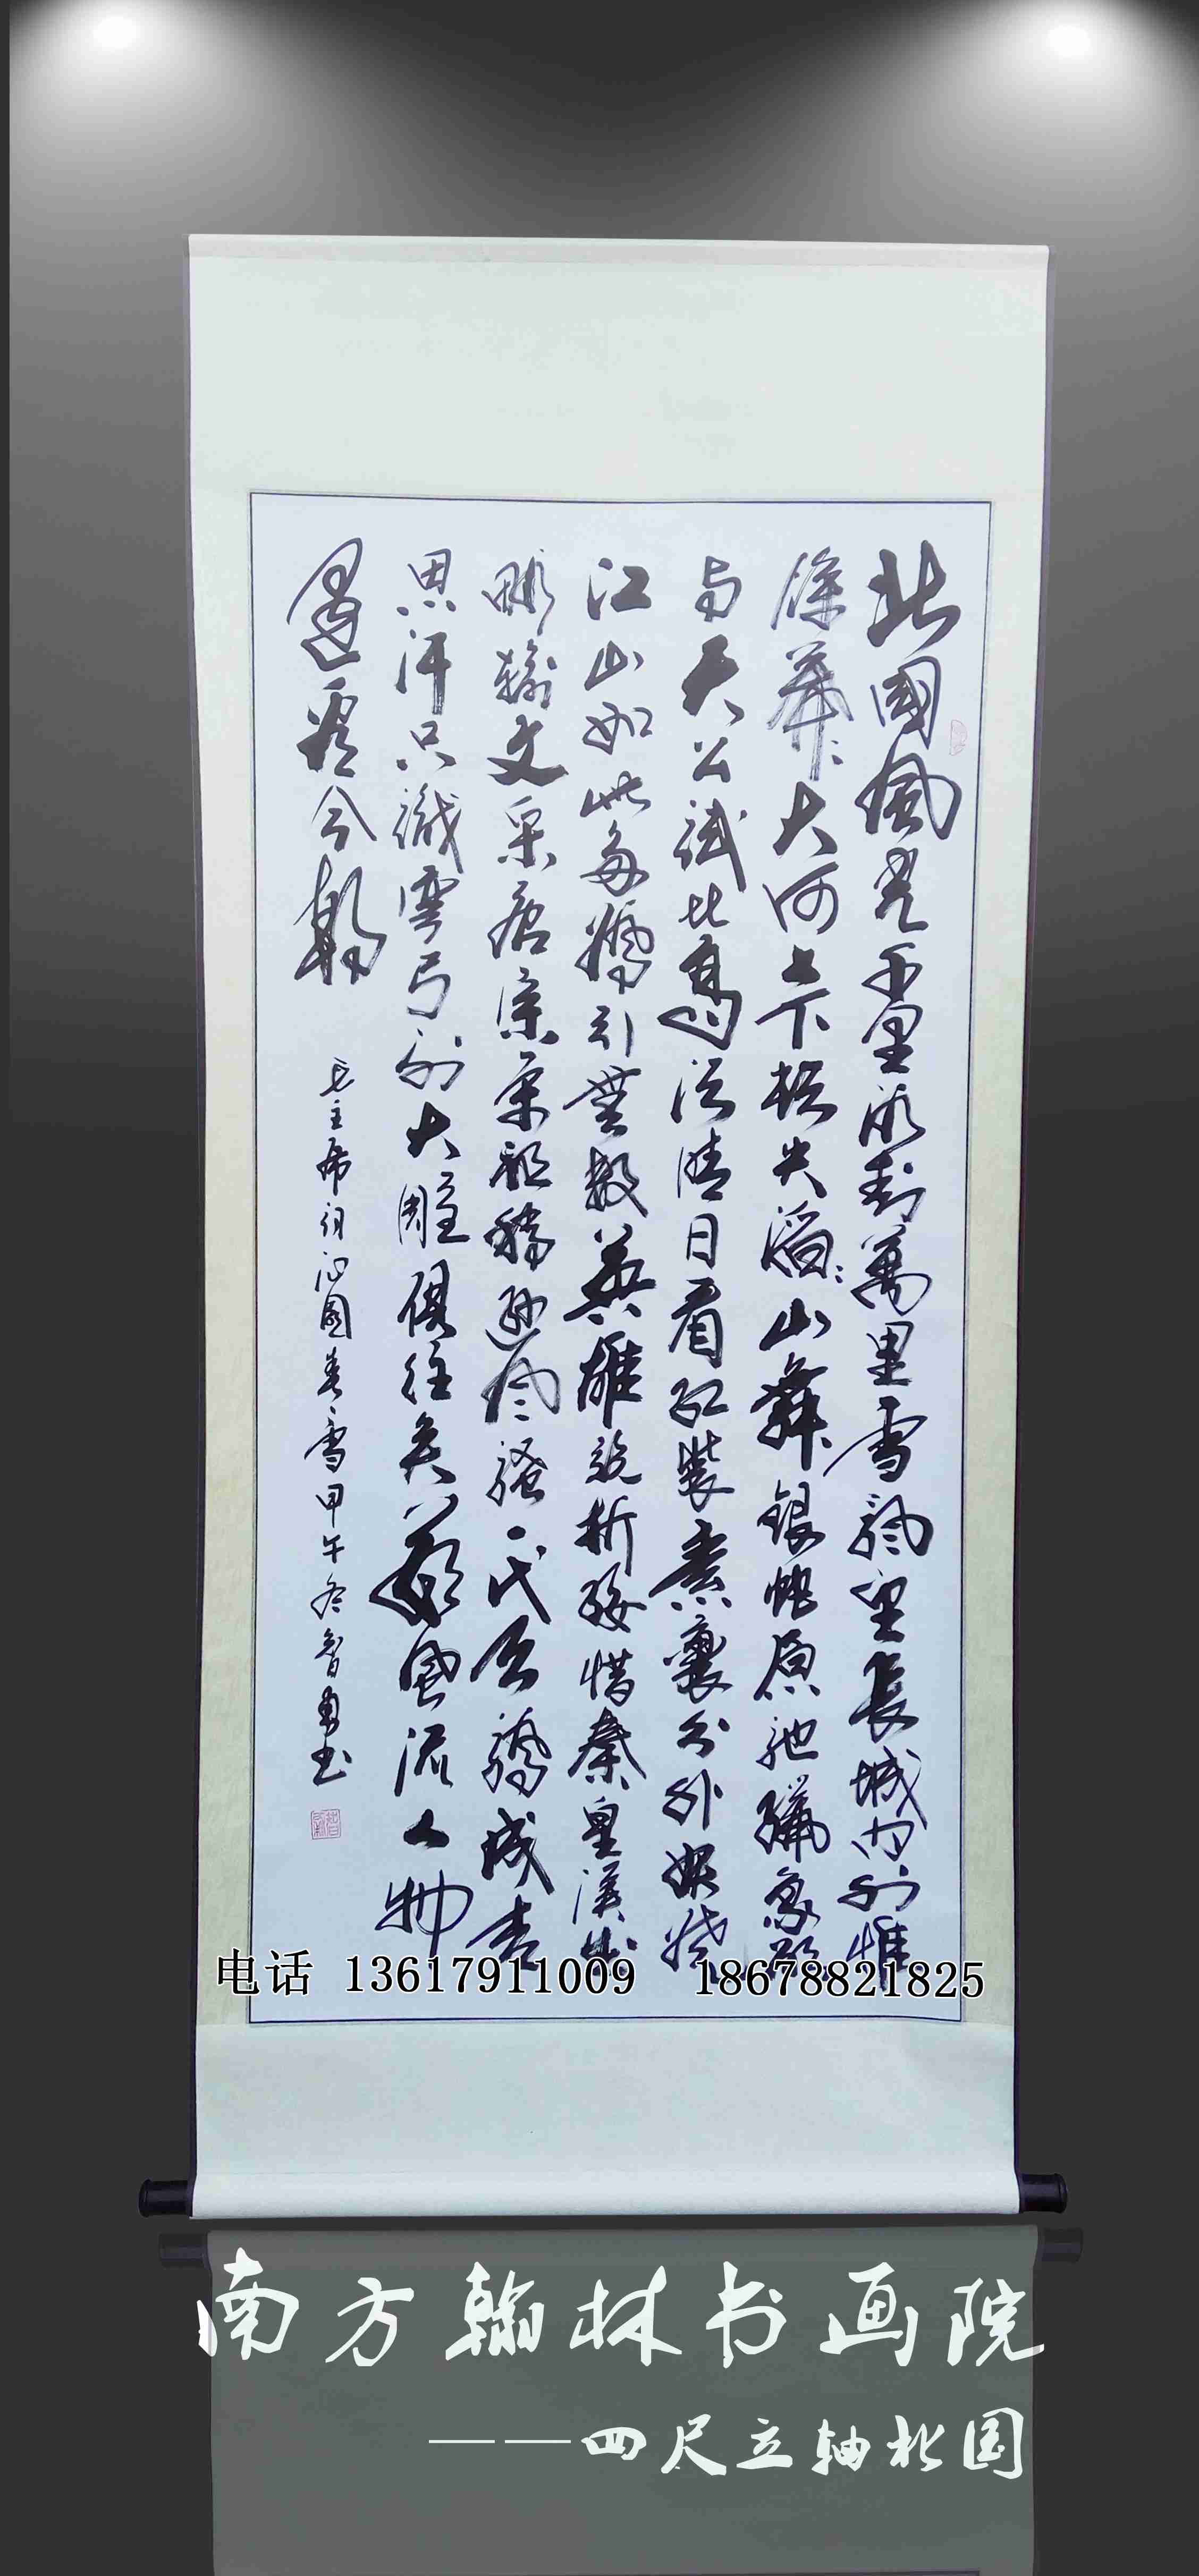 北國風光千里冰封萬里雪飄望長城内外惟
餘莽〻大河上下頓失滔〻山舞銀蛇原馳蠟象欲
与天公試比高须晴日看红裝素裹分外妖娆
江山如此多嬌引無數英雄競折腰惜秦皇漢武
略輸文采唐宗宋祖稍遜風騷一代天驕成吉
思汗只識彎弓射大雕俱往矣數風流人物
還看今朝
毛主席词沁園春雪甲午冬智勇书
电话 13617911009 18678821825
南方翰林书画院
——四尺立轴北国